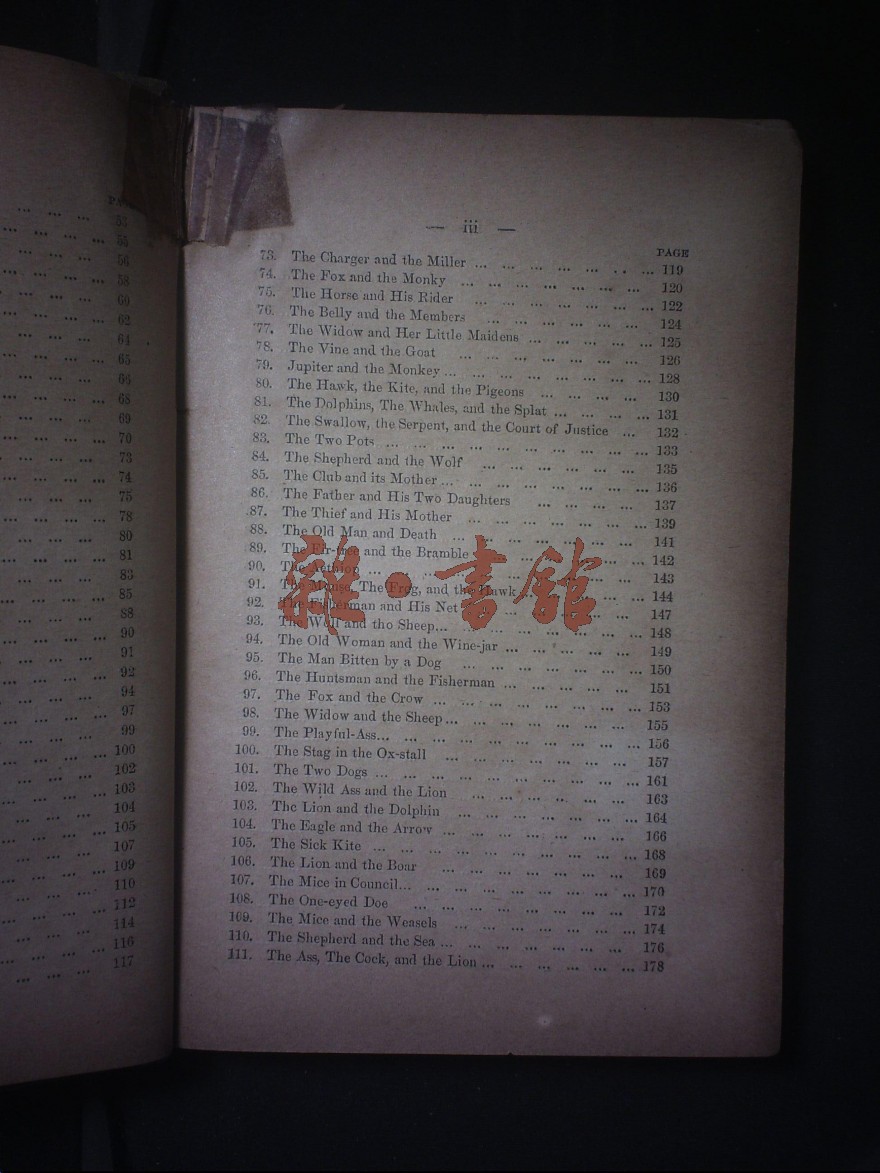 55
56
58
60
62
64
65
66
68
69
70
73
74
75
78
80
81
83
85
88
90
91
92
94
97
99
100
102
103
104
105
107
109
110
112
114
116
117
— iii —
PAGE
73. The Charger and the Miller ... ... ... ... ... ... 119
74. The Fox and the Monky ... ... ... ... ... ... 120
75. The Horse and His Rider ... ... ... ... ... ... 122
76. The Belly and the Members ... ... ... ... ... 124
77. The Widow and Her Little Maidens ... ... ... ... 125
78. The Vine and the Goat ... ... ... ... ... ... 126
79. Jupiter and the Monkey ... ... ... ... ... ... ... 128
80. The Hawk, the Kite, and the Pigeons ... ... ... ... 130
81. The Dolphins, The Whales, and the Splat ... ... ... ... 131
82. The Swallow, the Serpent, and the Court of Justice ... 132
83. The Two Pots ... ... ... ... ... ... ... ... ... 133
84. The Shepherd and the Wolf ... ... ... ... ... ... 135
85. The Club and its Mother ... ... ... ... ... ... ... 136
86. The Father and His Two Daughters ... ... ... ... 137
87. The Thief and His Mother ... ... ... ... ... ... 139
88. The Old Man and Death ... ... ... ... ... ... 141
89. The Fir-tree and the Bramble ... ... ... ... ... 142
90. The Aethiop ... ... ... ... ... ... ... ... 143
91. The Mouse, The Frog, and the Hawk ... ... ... ... 144
92. The Fisherman and His Net ... ... ... ... ... 147
93. The Wolf and tho Sheep... ... ... ... ... ... ... 148
94. The Old Woman and the Wine-jar ... ... ... ... ... 149
95. The Man Bitten by a Dog ... ... ... ... ... ... 150
96. The Huntsman and the Fisherman ... ... ... ... ... 151
97. The Fox and the Crow ... ... ... ... ... ... ... 153
98. The Widow and the Sheep ... ... ... ... ... ... 155
99. The Playful-Ass... ... ... ... ... ... ... ... ... 156
100. The Stag in the Ox-stall ... ... ... ... ... ... 157
101. The Two Dogs ... ... ... ... ... ... ... ... ... 161
102. The Wild Ass and the Lion ... ... ... ... ... 163
103. The Lion and the Dolphin ... ... ... ... ... ... 164
104. The Eagle and the Arrow ... ... ... ... ... ... 166
105. The Sick Kite ... ... ... ... ... ... ... ... ... 168
106. The Lion and the Boar ... ... ... ... ... ... 169
107. The Mice in Council... ... ... ... ... ... ... ... 170
108. The One-eyed Doe ... ... ... ... ... ... 172
109. The Mice and the Weasels ... ... ... ... ... ... 174
110. The Shepherd and the Sea ... ... ... ... ... ... 176
111. The Ass, The Cock, and the Lion ... ... ... ... ... ... 178
雜·書館